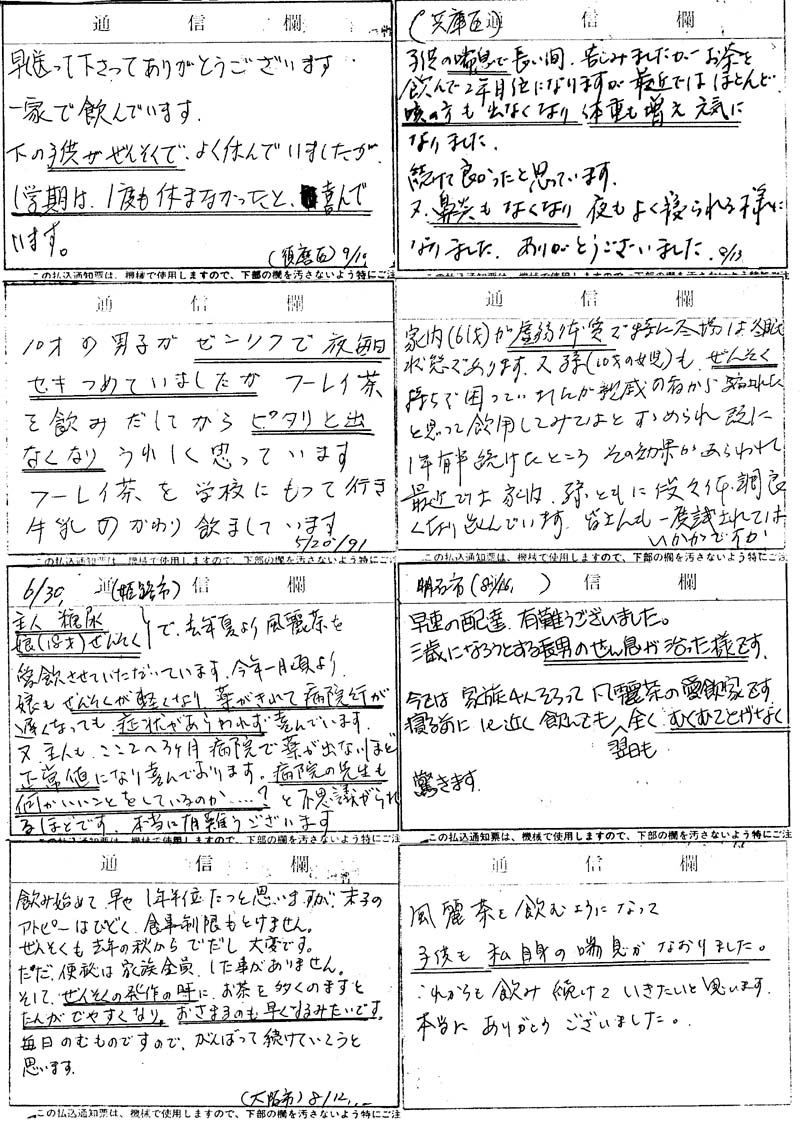 通信欄
早速送って下さってありがとうございます
一家で飲んでいます.
下の子供がぜんそくで、よく休んでいましたが、
1学期は、1度も休まなかったと、喜んで
います。
(須磨区) 9/10
この払込通知票は、機械で使用しますので、下部の欄を汚さないよう特にご注
(兵庫区)通信欄
子供の喘息で長い間、苦しみましたが、お茶を
飲んで2年目位になりますが最近ではほとんど
咳の方も出なくなり体重も増え元気に
なりました.
続けて良かったと思っています.
又、鼻炎もなくなり夜もよく寝られる様に
なりました。ありがとうございました. 8/13
この払込通知票は、機械で使用しますので、下部の欄を汚さないよう特にご注
通信欄
10才の男子がゼンソクで夜毎日
セキつめていましたがフーレイ茶
を飲みだしてからピタリと出
なくなりうれしく思っています
フーレイ茶を学校にもって行き
牛乳のかわり飲ましています
5/20 '91
この払込通知票は、機械で使用しますので、下部の欄を汚さないよう特にご注
通信欄
家内(61才)が虚弱体質で特に冬場は冬眠
状態であります。又孫(10才の女児)も、ぜんそく
持ちで困っていましたが親戚の者から
と思って飲用してみてはとすすめられ既に
1年有半続けたところその効果があらわれて
最近では家内、孫ともに段々体調良
くなり喜んでいます。皆さんも一度試されては
いかがですか
この払込通知票は、機械で使用しますので、下部の欄を汚さないよう特にご注
6/30, 通(姫路市)信欄
主人 糖尿
娘(18才)ぜんそく
で、去年夏より風麗茶を
愛飲させていただいています.今年一月頃より
娘もぜんそくが軽くなり、薬がきれて病院行が
遅くなっても症状があらわれず喜んでいます.
又、主人も、ここ2へ3ヶ月病院で薬が出ないほど
正常値になり喜んでおります。病院の先生も
何かいいことをしているのか....?と不思議がられ
るほどです、本当に有難うございます
この払込通知票は、機械で使用しますので、下部の欄を汚さないよう特にご注
明石市 信欄
早速の配達、有難うございました。
三歳になろうとする長男のぜん息が治った様です.
今では家族4人そろって風麗茶の愛飲家です
寝る前に1L近く飲んでも、全くむくむことがなく
翌日も
驚きます.
この払込通知票は、機械で使用しますので、下部の欄を汚さないよう特にご注
通信欄
飲み始めて早や1年半位たつと思いますが、末子の
アトピーはひどく、食事制限もとけません。
ぜんそくも去年の秋からでだし大変です。
ただ、便秘は家族全員、した事がありません。
そして、ぜんそくの発作の時に、お茶を多くのますと
たんがでやすくなり。おさまるのも早くなるみたいです。
毎日のむものですので、がんばって続けていこうと
思います.
(大阪市) 8/12
この払込通知票は、機械で使用しますので、下部の欄を汚さないよう特にご注
通信欄
風麗茶を飲むようになって
子供も私自身の喘息がなおりました。
これからも飲み続けていきたいと思います.
本当にありがとうございました。